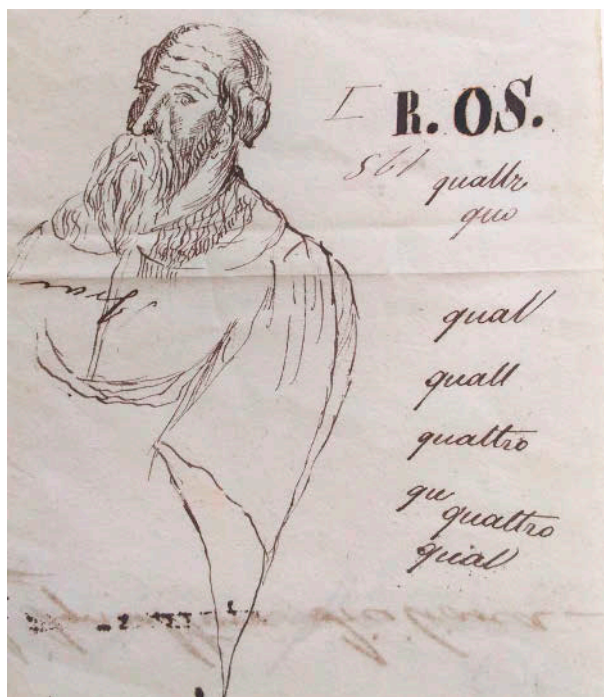 I R. OS.
561
quattr
quo
qual
quall
quattro
qu
quattro
qual